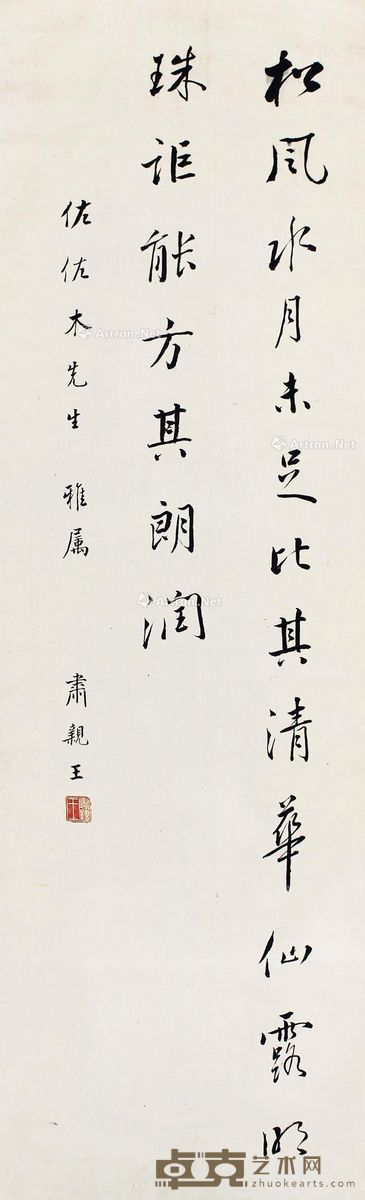 松風水月未足比其清華仙露明
珠詎能方其朗潤
佐佐木先生 雅属
肅親王
Artron.Net
Artron.Net
Artron.Net
Artron.Net
卓克艺术网
zhuokearts.com